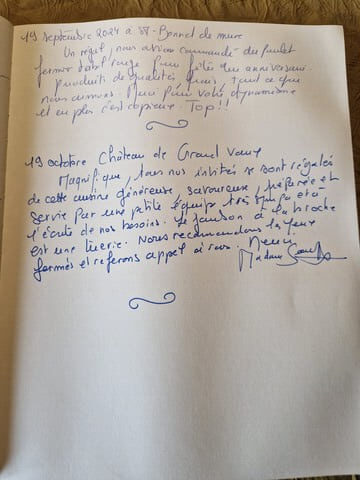 19 septembre 2024 à ST-Bonnet de mure
Un régal, nous avions commandé du poulet
fermier label rouge pour fêter un anniversaire.
Produits de qualités frais, tout ce que
nous aimons. Merci pour votre dynamisme
et en plus c'est copieux. Top!!
19 octobre Château de Grand Vaux
Magnifique, tous nos invités se sont régalés
de cette cuisine généreuse, savoureuse, préparée et
servie par une petite équipe très sympa et à
l'écoute de nos besoins. Le jambon à la broche
est une tuerie. Nous recommandons les yeux
fermés et referons appel à vous. Merci
Madame